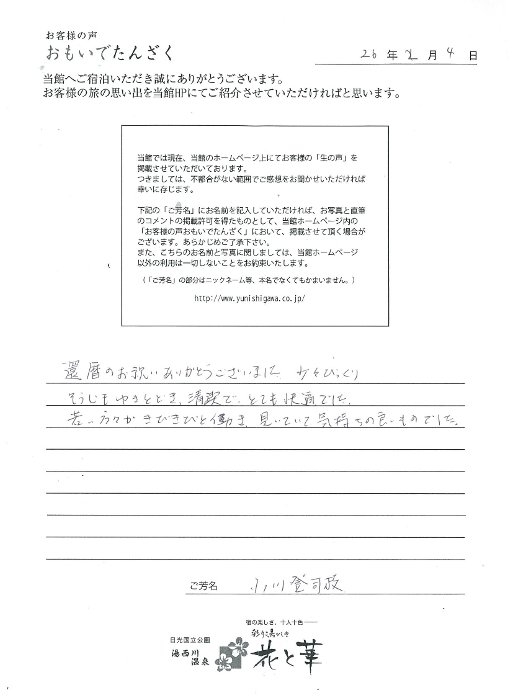 お客様の声
おもいでたんざく
26年2月4日
当館へご宿泊いただき誠にありがとうございます。
お客様の旅の思い出を当館HPにてご紹介させていただければと思います。
当館では現在、当館のホームページ上にてお客様の「生の声」を
掲載させていただいております。
つきましては、不都合がない範囲でご感想をお聞かせいただければ
幸いに存じます。
下記の「ご芳名」にお名前を記入していただければ、お写真と直筆
のコメントの掲載許可を得たものとして、当館ホームページ内の
「お客様の声おもいでたんざく」において、掲載させて頂く場合が
ございます。あらかじめご了承下さい。
また、こちらのお名前と写真に関しましては、当館ホームページ
以外の利用は一切しないことをお約束いたします。
(「ご芳名」の部分はニックネーム等、本名でなくてもかまいません。)
http://www.yunishigawa.co.jp/
還暦のお祝いありがとうございました 少々びっくり
そうじもゆきとどき、清潔で、とても快適でした。
若い方々がきびきびと働き、見ていて気持ちの良いものでした。
ご芳名 小川登司政
宿の楽しさ、十人十色
日光国立公園
湯西川温泉
彩り湯かしき
花と華